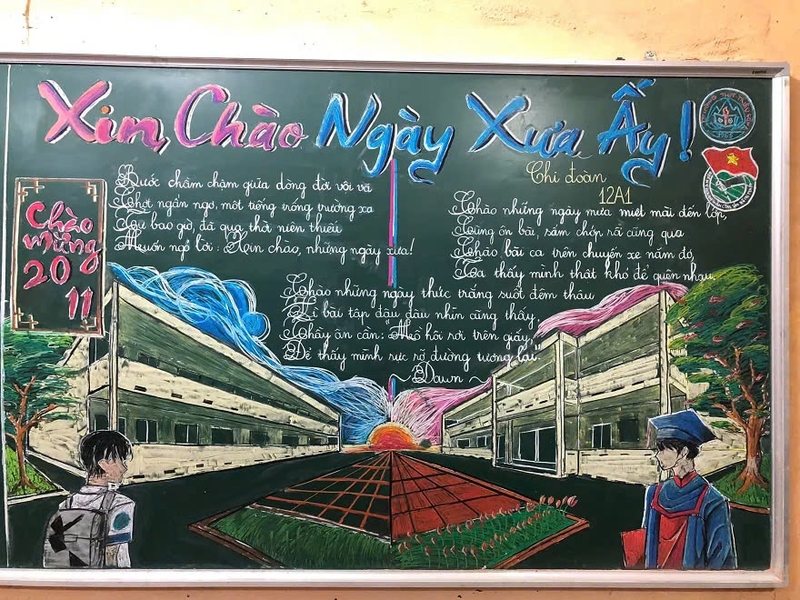 Xin Chào Ngày Xưa Ấy!
Chi đoàn
12A1
Chào
mừng
20
11
Bước chầm chậm giữa dòng đời vội vã
Chợt ngẩn ngơ, một tiếng trống trường xa
Từ bao giờ, đã qua, thời niên thiếu
Muốn ngỏ lời: Xin chào, những ngày xưa!
Chào những ngày mưa miệt mài đến lớp,
Cùng ôn bài, sấm chớp rồi cũng qua
Chào bài ca trên chuyến xe năm đó,
Ta thấy mình thật khó để quên nhau
Chào những ngày thức trắng suốt đêm thâu
Vì bài tập đâu đâu nhìn cũng thấy,
Thầy ân cần: Mồ hôi rơi trên giấy,
Để thấy mình rực rỡ đường tương lai"
~ Dawn ~